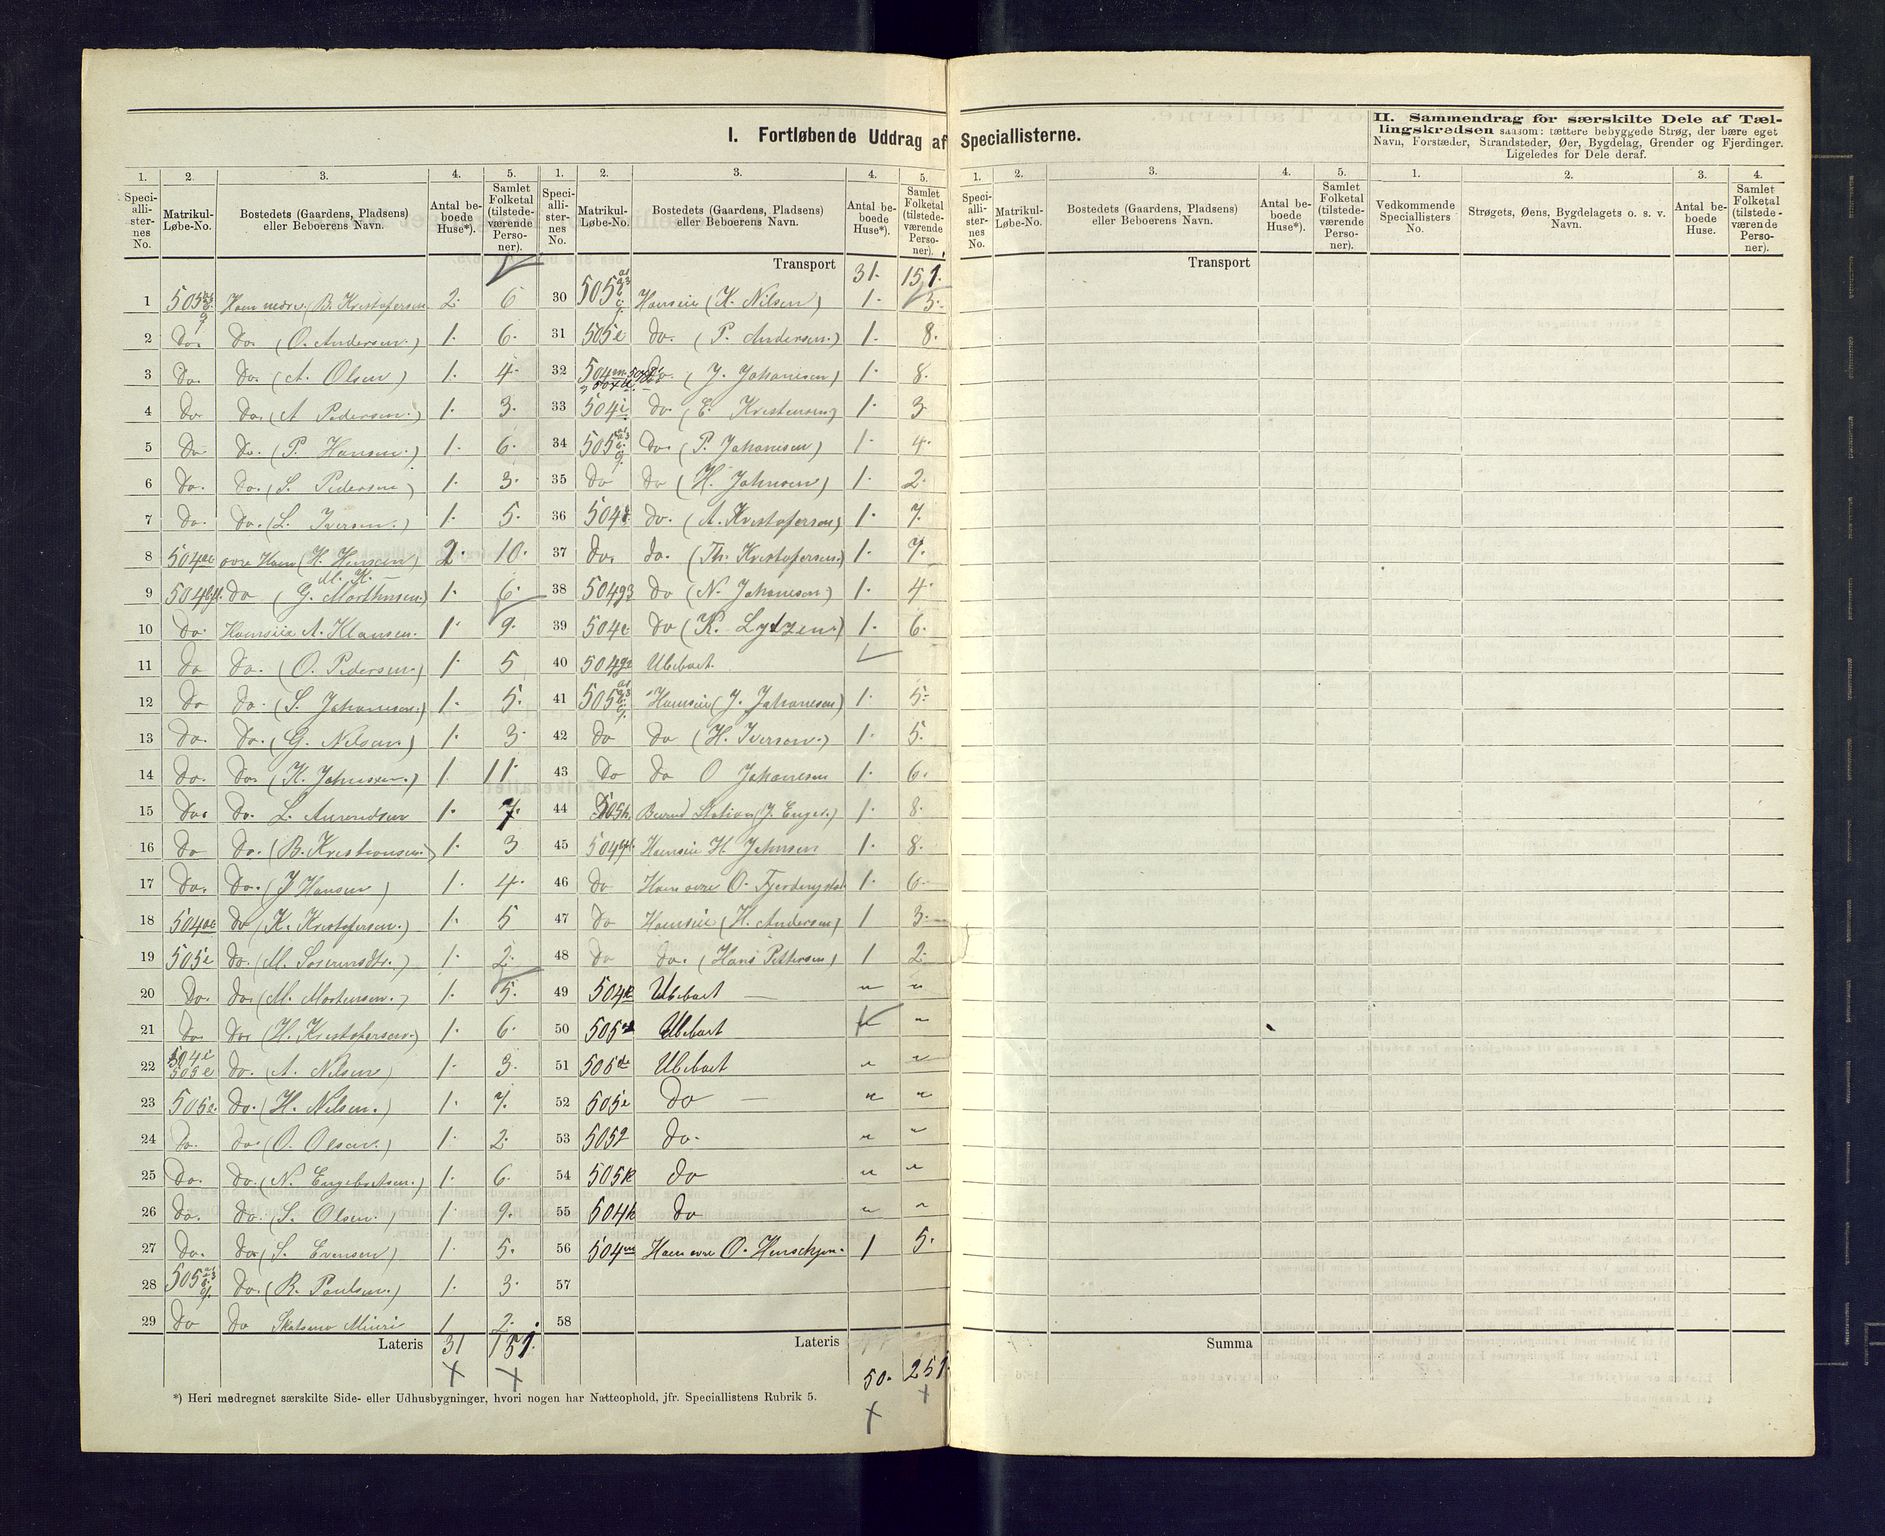 I. Fortløbende Uddrag af Speciallisterne.
II. Sammendrag for særskilte Dele af Tæl-
lingskredsen saasom: tættere bebyggede Strøg, der bære eget
Navn, Forstæder, Strandsteder, Øer, Bygdelag, Grender og Fjerdinger.
Ligeledes for Dele deraf.
1. 2. 3. 4. 5. 1. 2. 3. 4. 5. 1. 2. 3. 4. 5. 1. 2. 3. 4.
Speciallisternes No. Matrikul-Løbe-No. Bostedets (Gaardens, Pladsens) eller Beboerens Navn. Antal beboede Huse*). Samlet Folketal (tilstedeværende Personer).
Speciallisternes No. Matrikul-Løbe-No. Bostedets (Gaardens, Pladsens) eller Beboerens Navn. Antal beboede Huse*). Samlet Folketal (tilstedeværende Personer).
Speciallisternes No. Matrikul-Løbe-No. Bostedets (Gaardens, Pladsens) eller Beboerens Navn. Antal beboede Huse*). Samlet Folketal (tilstedeværende Personer).
Vedkommende Speciallisters No. Strøgets, Øens, Bygdelagets o. s. v. Navn. Antal beboede Huse. Samlet Folketal (tilstedeværende Personer).
1 505 Haen nedre (B. Kristofersen 2. 6
2 Do. Do. (O. Andersen.) 1. 6.
3 Do. Do. (A. Olsen) 1. 4.
4 Do Do. (A Pedersen.) 1. 3.
5 Do Do. (P. Hansen.) 1. 6.
6 Do. Do. (S. Pedersen) 1. 3.
7 Do. Do. (L. Iversen.) 1. 5.
8 504 ovre Haen (H. Hansen) 2. 10.
9 504 do (G. Morthnsen.) 1. 6.
10 Do. Haensiie A. Klausen. 1. 9.
11 Do Do. (O. Pedersen.) 1. 5
12 Do Do. (S. Johansen.) 1. 5.
13 Do. Do. (G. Nilsen) 1. 3
14 Do. Do. (K. Johnsen.) 1. 11.
15 Do. Do. L. Amundsen 1. 7.
16 Do Do. (B. Kristiansen.) 1. 3
17 Do. Do. (J Hansen) 1. 4.
18 504ae do (K. Kristofersen.) 1. 5
19 505i do. (M. Sorensdtr.) 1. 2.
20 Do. do. (M. Mortensen.) 1. 5.
21 Do Do. (H. Kristofersen.) 1. 6.
22 504i 505e do. (A. Nilsen) 1. 3.
23 505 do. (H. Nilsen.) 1. 7.
24 Do. do. (O. Olsen.) 1. 2.
25 Do. do. (N. Engebretsen.) 1. 6.
26 Do. do. (S. Olsen.) 1. 9.
27 Do. do. (S. Evensen) 1. 5.
28 505 do. (R. Paulsen.) 1. 3.
29 Do do 1 2.
Lateris 31 151.
Transport 31. 151.
30 505 Haensiie (K. Nilsen) 1. 5.
31 505e do. (P. Andersen.) 1. 8.
32 504m do. (J. Johanesen) 1. 8.
33 504i do. (E. Kristensen) 1. 3
34 505 do. (P. Johanesen) 1. 4.
35 Do do (H. Johnsen) 1. 2.
36 504 do. (A. Kristoferson) 1. 7.
37 Do. do. (Th. Kristofersen.) 1. 7.
38 504g3 do (N. Johanesen) 1. 4.
39 504e do (K. Lytzen.) 1. 6.
40 504g2 Ubeboet.
41 505 Haensiie (J. Johanesen) 1. 5.
42 Do do (H. Iversen.) 1. 5.
43 Do do O Johanesen 1. 6.
44 505h. Station (J. Enger.) 1. 8.
45 504 Haensiie H. Johnsen 1. 8.
46 do Haen ovre O. Fjerdingstad 1. 6.
47 do Haensiie (H. Andersen) 1 3.
48 do do. (Hans Pettersen) 1 2.
49 504k Ubeboet " "
50 505 Ubeboet " "
51 505 Ubeboet " "
52 505i do " "
53 do. " "
54 505k do " "
55 504k do " "
56 504m Haen ovre O. 1 5.
57
58
Lateris 50. 251.
Transport
Summa
*) Heri medregnet særskilte Side- eller Udhusbygninger, hvori nogen har Natteophold, jfr. Speciallistens Rubrik 5.